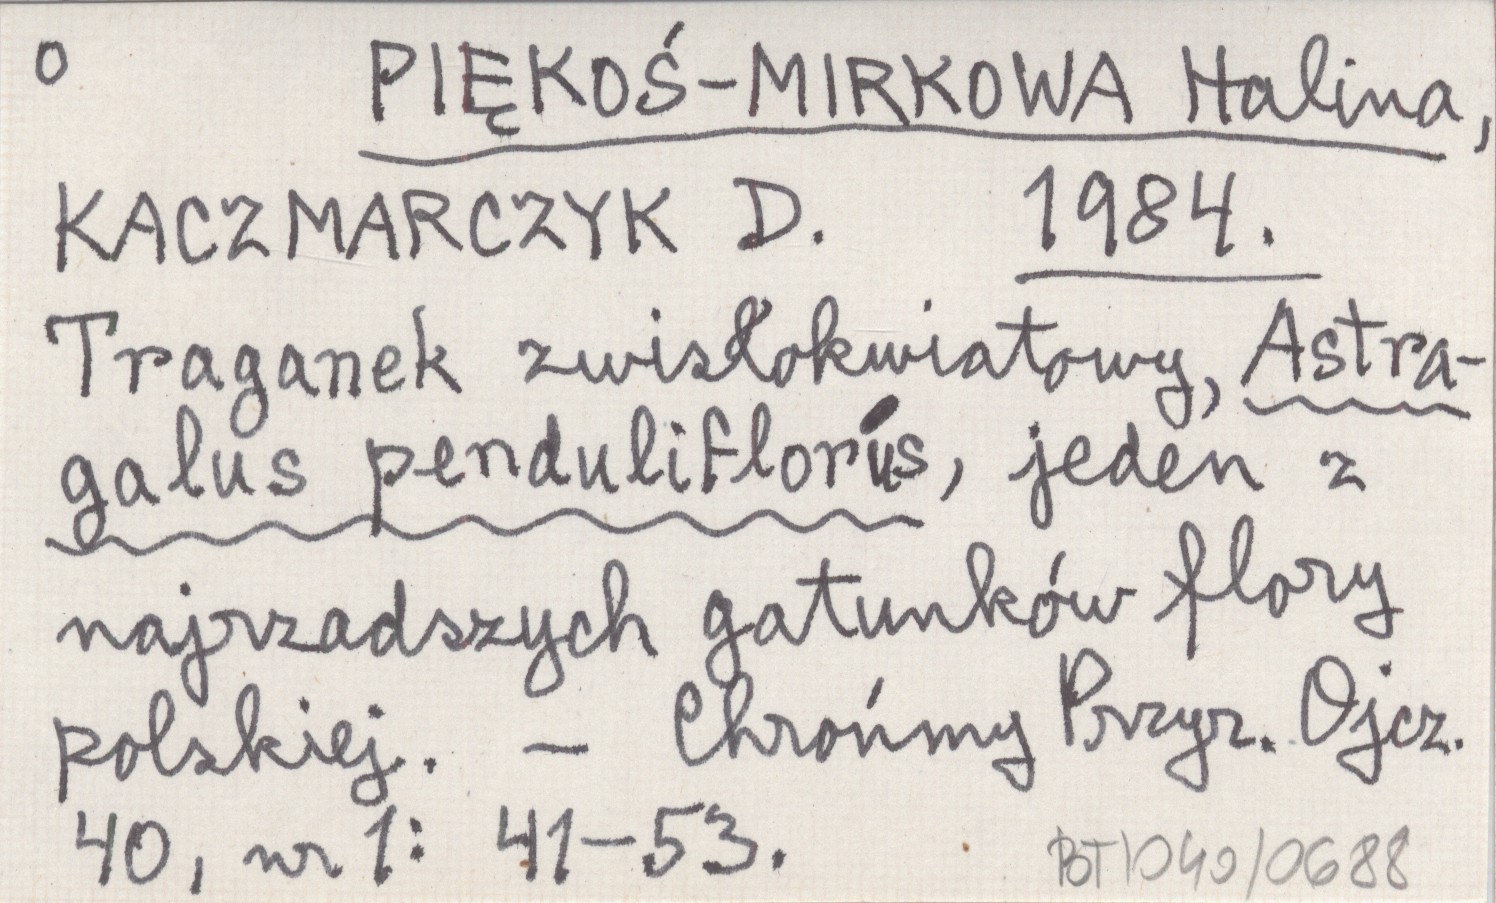 o PIĘKOŚ-MIRKOWA Halina,
KACZMARCZYK D. 1984.
Traganek zwisłokwiatowy, Astra-
galus penduliflorus, jeden z
najrzadszych gatunków flory
polskiej. — Chrońmy Przyr. Ojcz.
40, nr 1: 41-53.
BT/040/0688